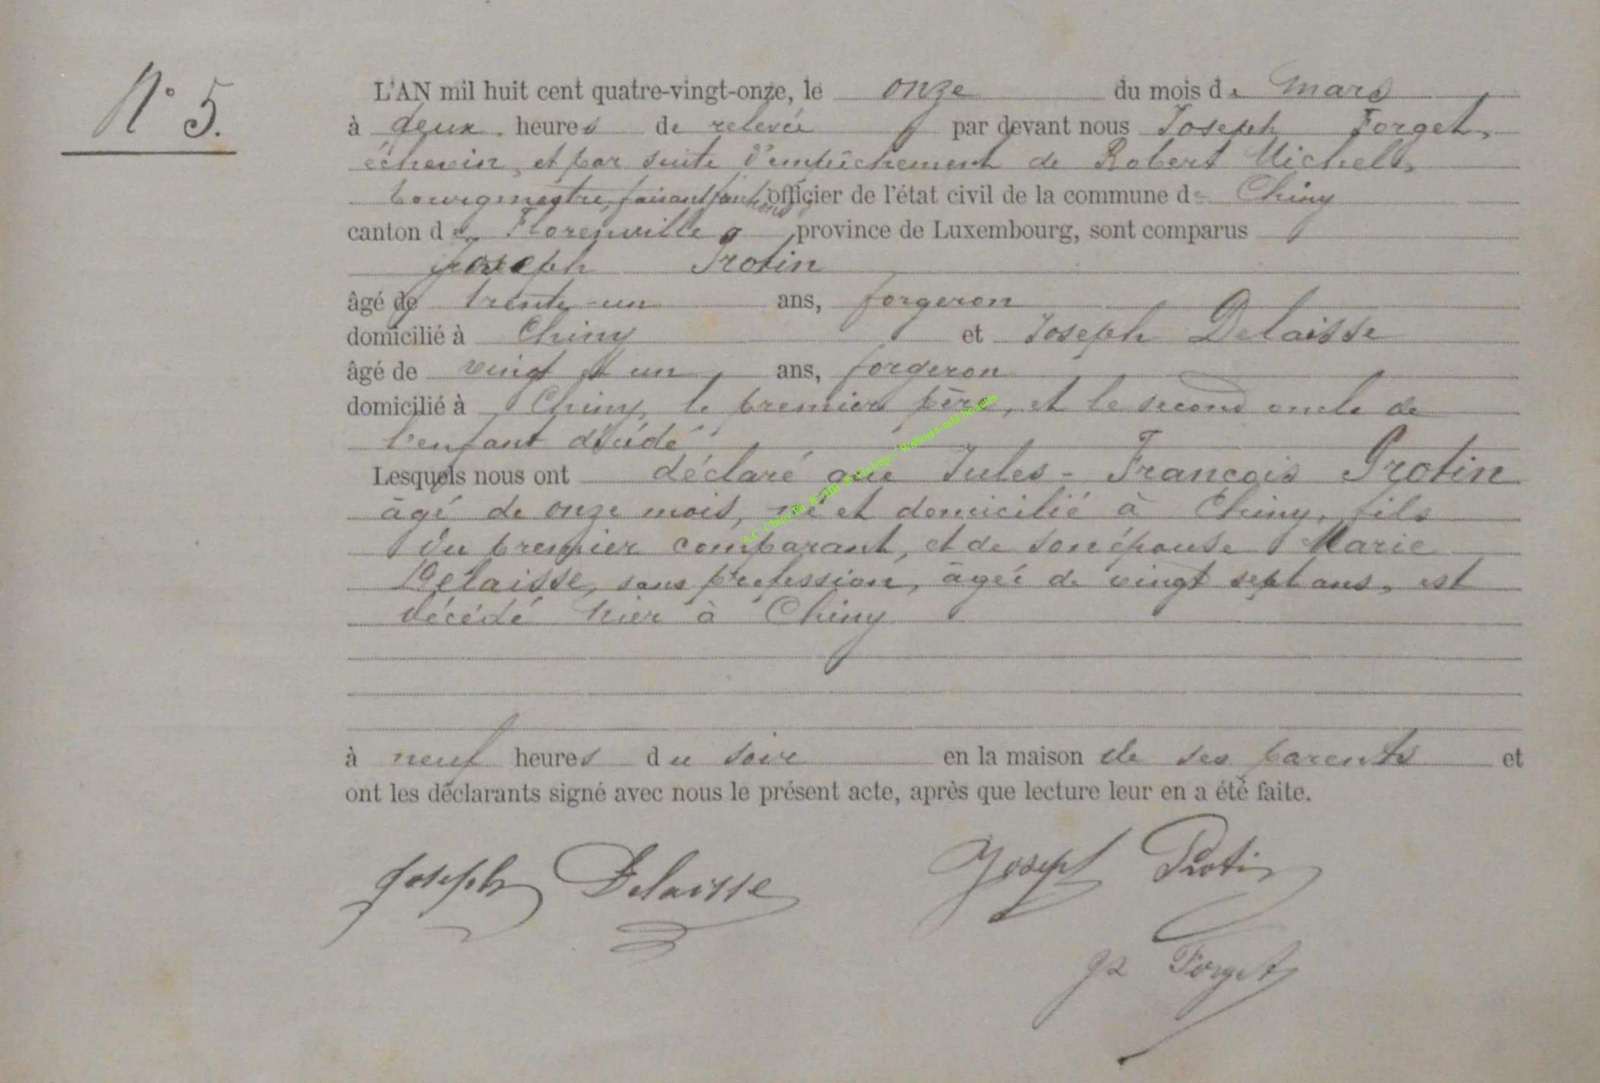 N° 5.
L'AN mil huit cent quatre-vingt-onze, le onze du mois de mars
à deux heures de relevée par devant nous Joseph Forget,
échevin, et par suite d'empêchement de Robert Michels,
bourgmestre, faisant fonctions d'officier de l'état civil de la commune de Chiny
canton de Florenville, province de Luxembourg, sont comparus
Joseph Protin
âgé de trente-un ans, forgeron
domicilié à Chiny et Joseph Delaisse
âgé de vingt et un ans, forgeron
domicilié à Chiny, le premier père, et le second oncle de
l'enfant décédé
Lesquels nous ont déclaré que Jules-François Protin
âgé de onze mois, né et domicilié à Chiny, fils
du premier comparant, et de son épouse Marie
Delaisse, sans profession, âgée de vingt sept ans, est
décédé hier à Chiny
à neuf heures du soir en la maison de ses parents et
ont les déclarants signé avec nous le présent acte, après que lecture leur en a été faite.
Joseph Delaisse Joseph Protin
Forget